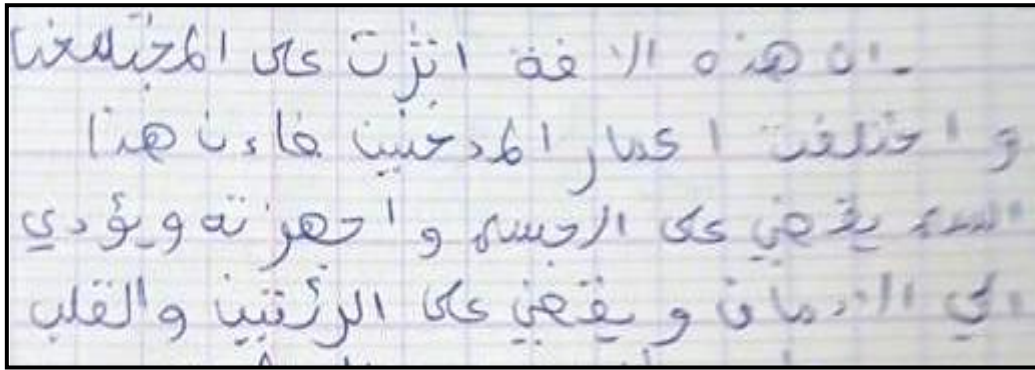 - ان هذه الافة اثرت على المجتمعنا
و اختلفت اعمار المدخنين فاءن هذا
السم يقضي على الجسم و اجهزته ويؤدي
الي الادمان و يقضي على الرئتين والقلب